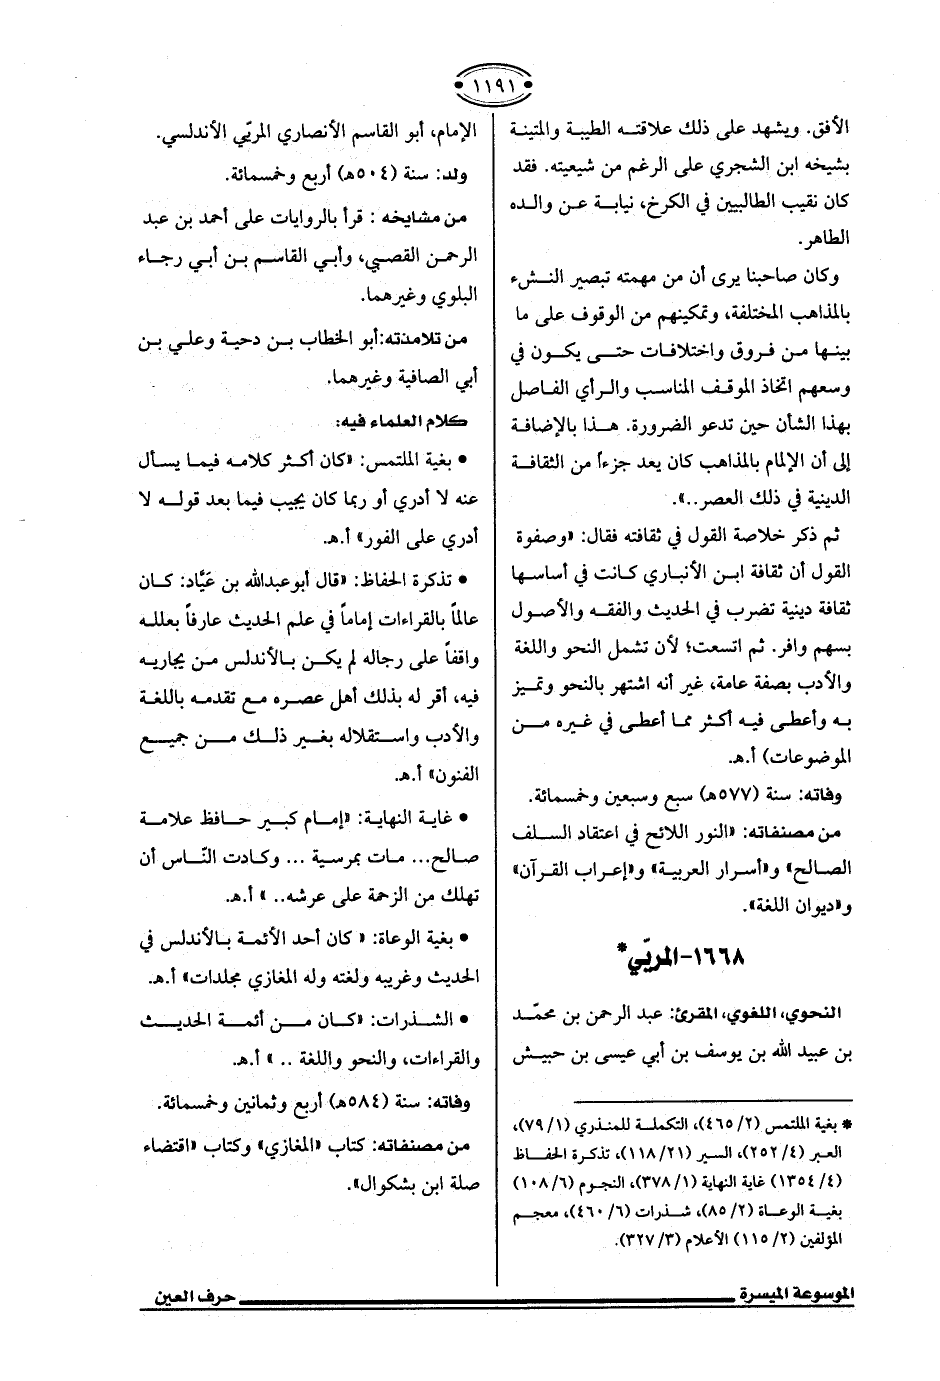 ١١٩١
الأفق. ويشهد على ذلك علاقته الطيبة والمتينة
بشيخه ابن الشجري على الرغم من شيعيته. فقد
كان نقيب الطالبيين في الكرخ، نيابة عن والده
الطاهر.
وكان صاحبنا يرى أن من مهمته تبصير النشء
بالمذاهب المختلفة، وتمكينهم من الوقوف على ما
بينها من فروق واختلافات حتى يكون في
وسعهم اتخاذ الموقف المناسب والرأي الفاصل
بهذا الشأن حين تدعو الضرورة. هذا بالإضافة
إلى أن الإلمام بالمذاهب كان يعد جزءاً من الثقافة
الدينية في ذلك العصر..».
ثم ذكر خلاصة القول في ثقافته فقال: «وصفوة
القول أن ثقافة ابن الأنباري كانت في أساسها
ثقافة دينية تضرب في الحديث والفقه والأصول
بسهم وافر. ثم اتسعت؛ لأن تشمل النحو واللغة
والأدب بصفة عامة، غير أنه اشتهر بالنحو وتميز
به وأعطى فيه أكثر مما أعطى في غيره من
الموضوعات) أ.هـ.
وفاته: سنة (٥٧٧هـ) سبع وسبعين وخمسمائة.
من مصنفاته: «النور اللائح في اعتقاد السلف
الصالح» و«أسرار العربية» و«إعراب القرآن»
و«ديوان اللغة».
١٦٦٨-المريّي*
النحوي، اللغوي، المقرئ: عبد الرحمن بن محمّد
بن عبيد الله بن يوسف بن أبي عيسى بن حبيش
* بغية الملتمس (٢/ ٤٦٥)، التكملة للمنذري (١/ ٧٩)،
العبر (٤/ ٢٥٢)، السير (٢١/ ١١٨)، تذكرة الحفاظ
(٤/ ١٣٥٤) غاية النهاية (١/ ٣٧٨)، النجوم (٦/ ١٠٨)
بغية الوعاة (٢/ ٨٥)، شذرات (٦/ ٤٦٠)، معجم
المؤلفين (٢/ ١١٥) الأعلام (٣/ ٣٢٧).
الإمام، أبو القاسم الأنصاري المريّي الأندلسي.
ولد: سنة (٥٠٤هـ) أربع وخمسمائة.
من مشايخه : قرأ بالروايات على أحمد بن عبد
الرحمن القصبي، وأبي القاسم بن أبي رجاء
البلوي وغيرهما.
من تلامذته:أبو الخطاب بن دحية وعلي بن
أبي الصافية وغيرهما.
كلام العلماء فيه:
• بغية الملتمس: «كان أكثر كلامه فيما يسأل
عنه لا أدري أو ربما كان يجيب فيما بعد قوله لا
أدري على الفور» أ.هـ.
• تذكرة الحفاظ: «قال أبو عبدالله بن عيّاد: كان
عالماً بالقراءات إماماً في علم الحديث عارفاً بعلله
واقفاً على رجاله لم يكن بالأندلس من يجاريه
فيه، أقر له بذلك أهل عصره مع تقدمه باللغة
والأدب واستقلاله بغير ذلك من جميع
الفنون» أ.هـ.
• غاية النهاية: «إمام كبير حافظ علامة
صالح... مات بمرسية ... وكادت النّاس أن
تهلك من الزحمة على عرشه.. » أ.هـ.
• بغية الوعاة: « كان أحد الأئمة بالأندلس في
الحديث وغريبه ولغته وله المغازي مجلدات» أ.هـ.
• الشذرات: «كان من أئمة الحديث
والقراءات، والنحو واللغة .. » أ.هـ.
وفاته: سنة (٥٨٤هـ) أربع وثمانين وخمسمائة.
من مصنفاته: كتاب «المغازي» وكتاب «اقتضاء
صلة ابن بشكوال».
الموسوعة الميسرة
حرف العين